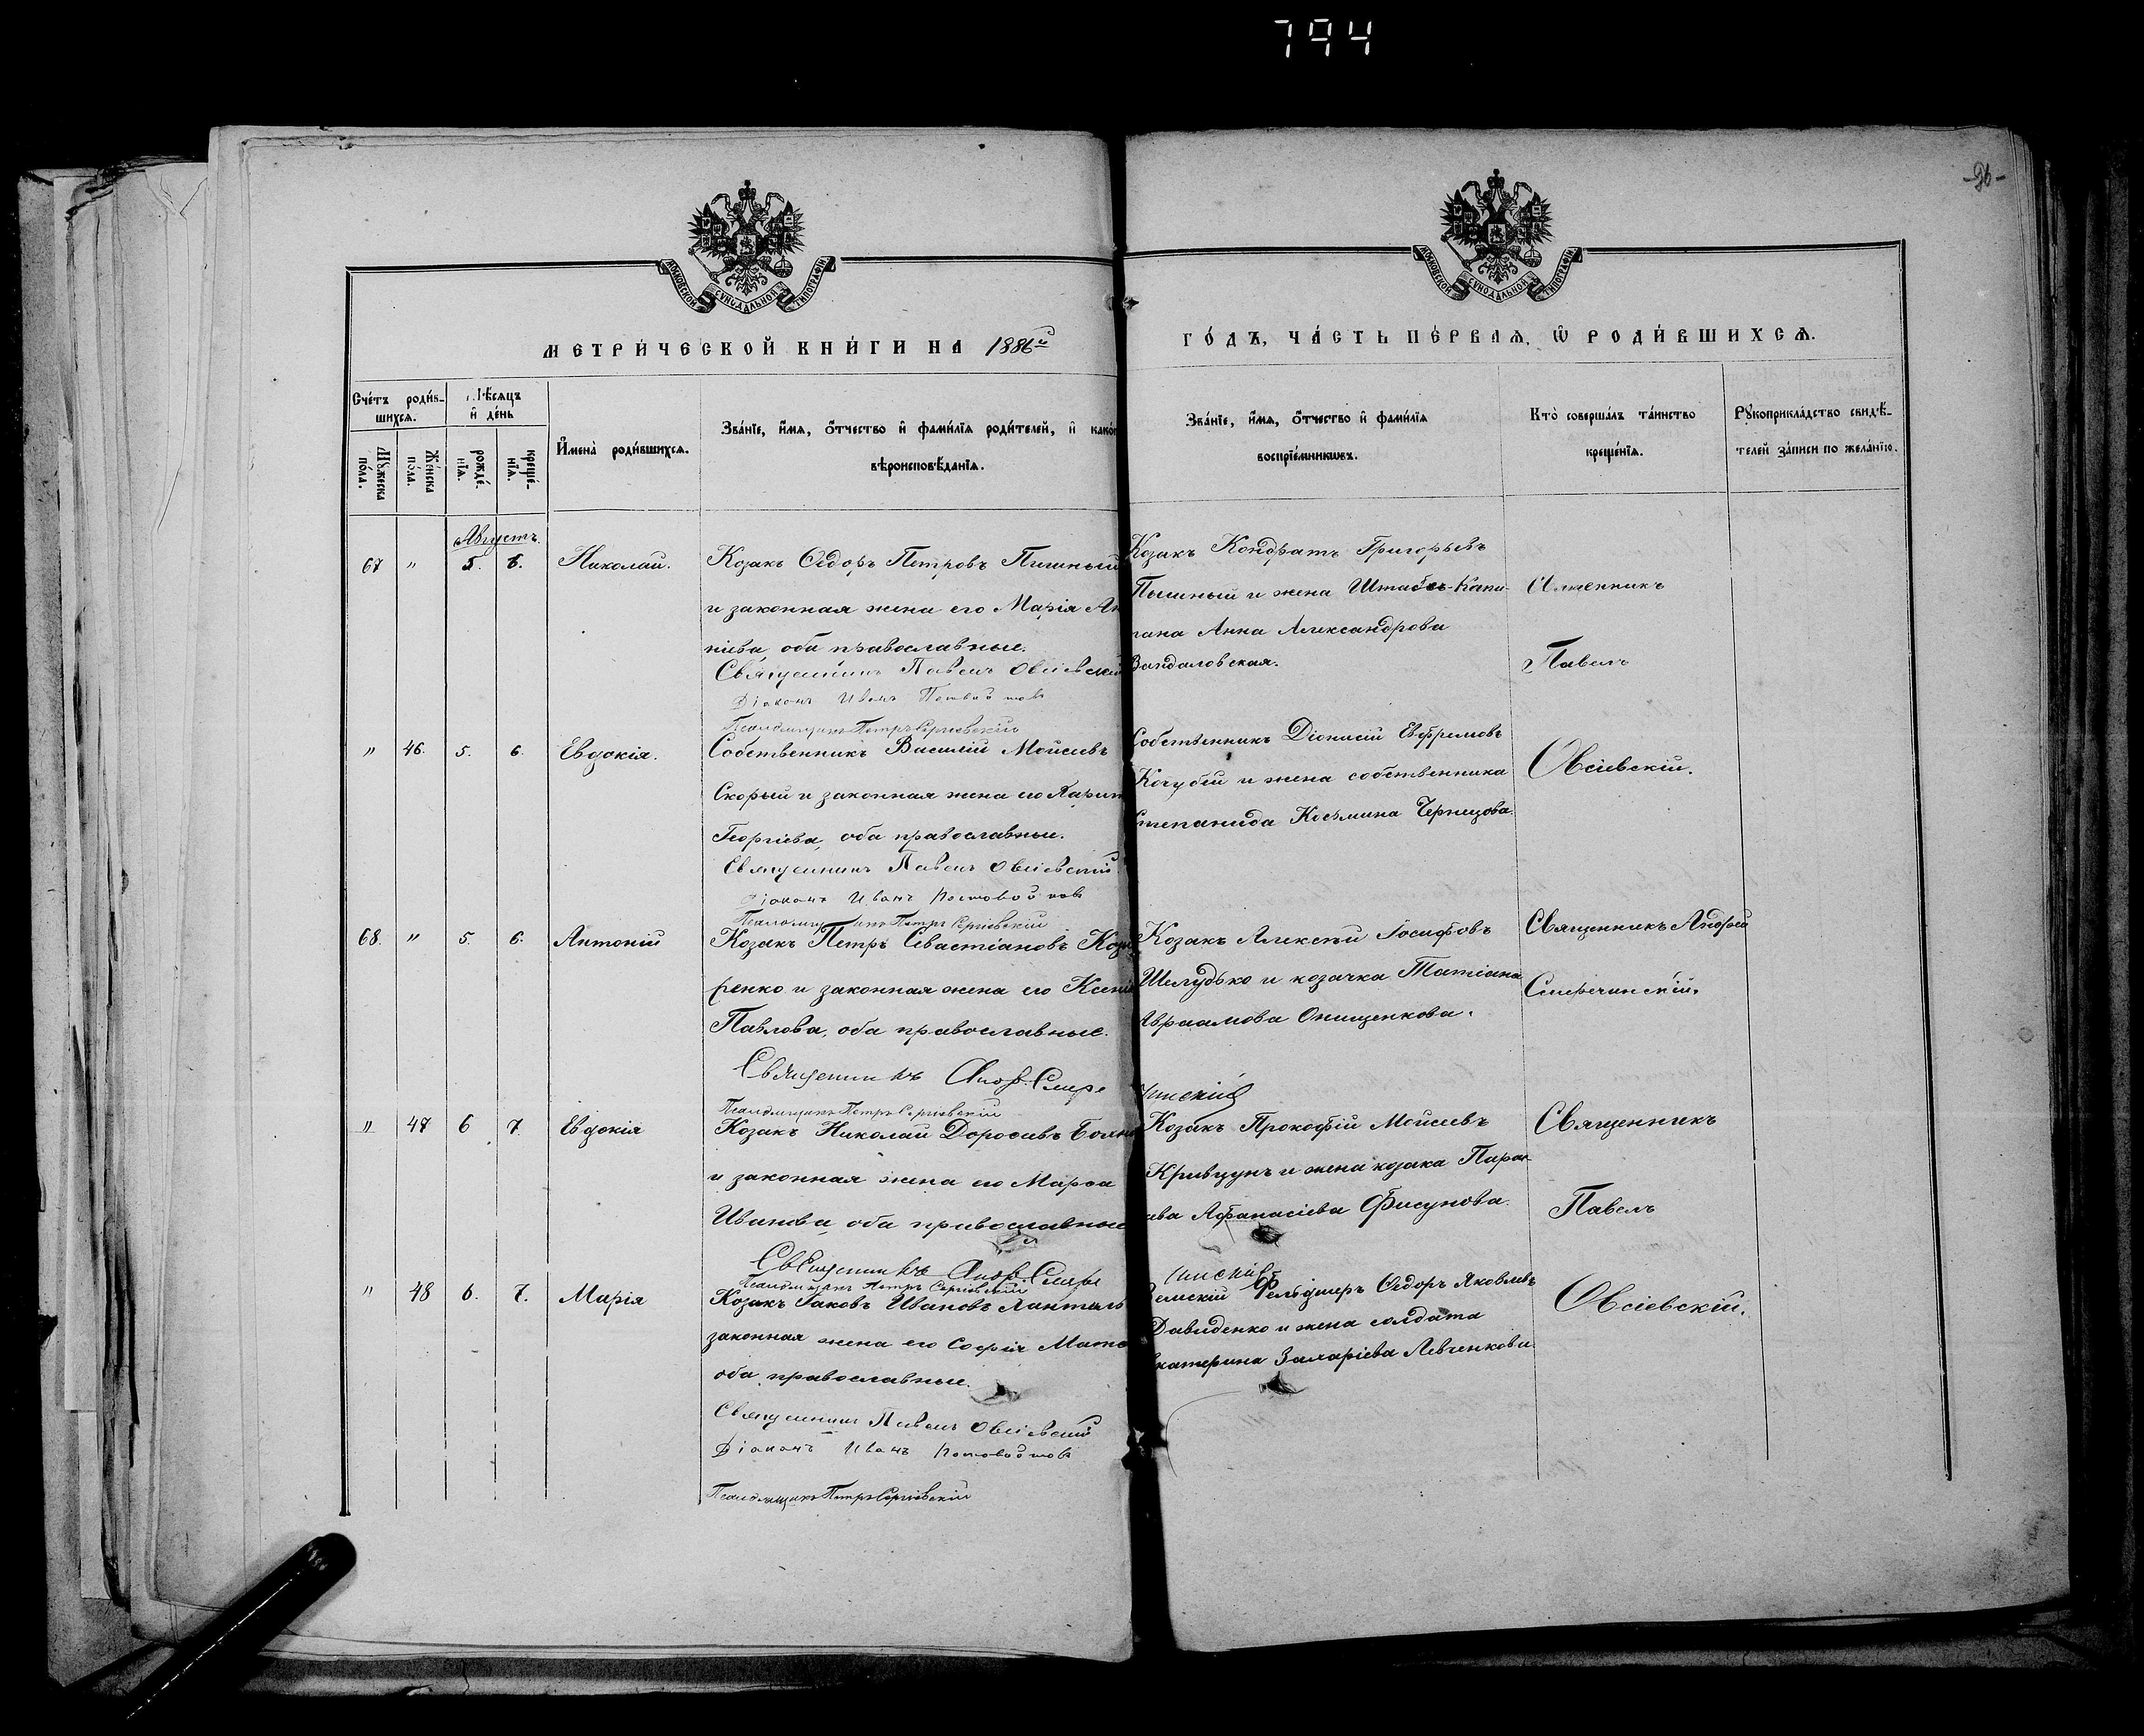 794
-96-
МОСКОВСКОЙ СѴНОДАЛЬНОЙ ТИПОГРАФІИ
МОСКОВСКОЙ СѴНОДАЛЬНОЙ ТИПОГРАФІИ
МЕТРИ́ЧЕСКОЙ КНИ́ГИ НА 1886й
ГО́ДЪ, ЧА́СТЬ ПЕ́РВАѦ, Ѿ РОДИ́ВШИХСѦ.
Сче́тъ роди́в-
шихсѧ.
Мѣ́сяцъ
и де́нь
Мꙋ́жеска по́ла.
Же́нска по́ла.
рожде́-
нїѧ.
креще́-
нїѧ.
Имена̀ роди́вшихсѧ.
Зва́нїе, и́мѧ, о́тчество и фами́лїѧ роди́телей, и како́
вѣроисповѣ́данїѧ.
Зва́нїе, и́мѧ, о́тчество и фами́лїѧ
воспрїе́мникѡвъ.
Кто̀ соверша́лъ та́инство
креще́нїѧ.
Рꙋкоприкла́дство свидѣ́-
телей за́писи по жела́нїю.
Августъ.
67 " 5. 6. Николай. Козакъ Ѳедоръ Петровъ Пышный
и законная жена его Марія Ан
ніева, оба православные.
Священникъ Павелъ Овсіевскій
Діаконъ Иванъ
Псаломщикъ Петръ Сергіевскій
Козакъ Кондратъ Григорьевъ
Пышный и жена Штабсъ-Капи-
тана Анна Александрова
Вандаловская.
Священникъ
Павелъ
" 46. 5. 6. Евдокія. Собственникъ Василій Моисеевъ
Скорый и законная жена его
Георгіева, оба православные.
Священникъ Павелъ Овсіевскій
Діаконъ Иванъ
Псаломщикъ Петръ Сергіевскій
Собственникъ Діонисій Евфремовъ
Кочубей и жена собственника
Степанида Косьмина Чернецова.
Овсіевскій.
68. " 5. 6. Антоній Козакъ Петръ Севастіановъ Коз
ренко и законная жена его Ксенія
Павлова, оба православные.
Священникъ Анд. Смере
Псаломщикъ Петръ Сергіевскій
Козакъ Алексѣй Іосифовъ
Шелудько и козачка Татіана
Авраамова Онищенкова.
чинскій
Священникъ Андрей
Смеречинскій.
" 47 6 7. Евдокія Козакъ Николай Дорофеевъ
и законная жена его Марѳа
Иванова, оба православные
Священникъ Анд. Смере
Псаломщикъ Петръ Сергіевскій
Козакъ Прокофій Моисеевъ
Кривцунъ и жена козака Парас-
кева Афанасіева Фисунова.
чинскій
Священникъ
Павелъ
" 48 6. 7. Марія Козакъ Іаковъ Ивановъ
законная жена его Софія
оба православные.
Священникъ Павелъ Овсіевскій
Діаконъ Иванъ
Псаломщикъ Петръ Сергіевскій
Земскій Фельдшеръ Ѳедоръ Яковлевъ
Давиденко и жена солдата
Екатерина Захаріева Левченкова.
Овсіевскій.